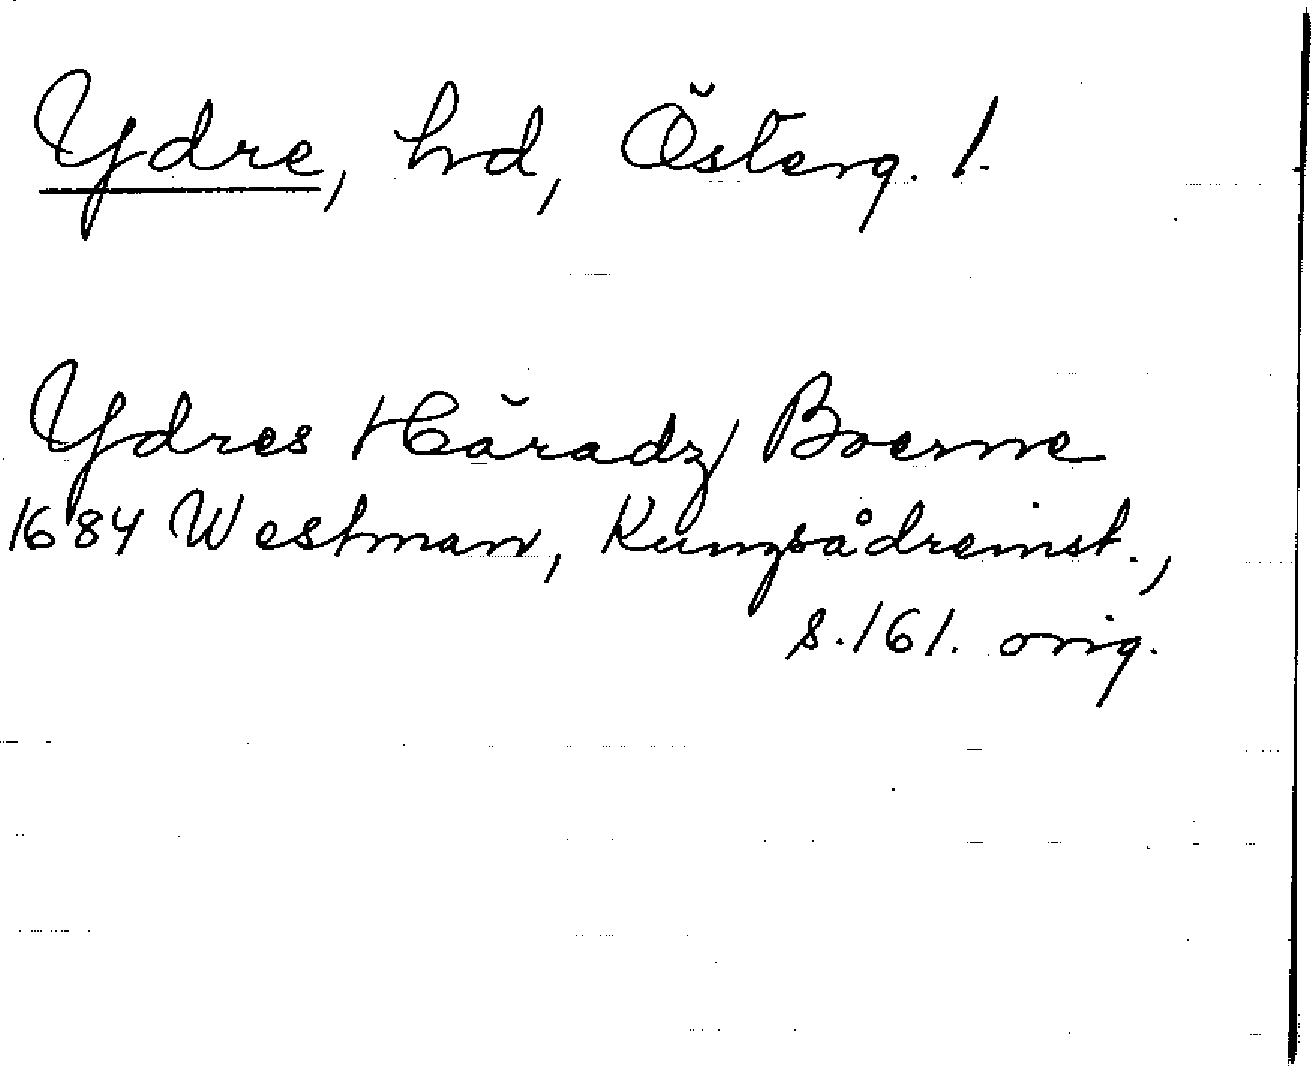 Ydre, hrd, Österg. l.
Ydres Häradz Boerne
1684 Westman, Kungsådreinst.,
s. 161. orig.